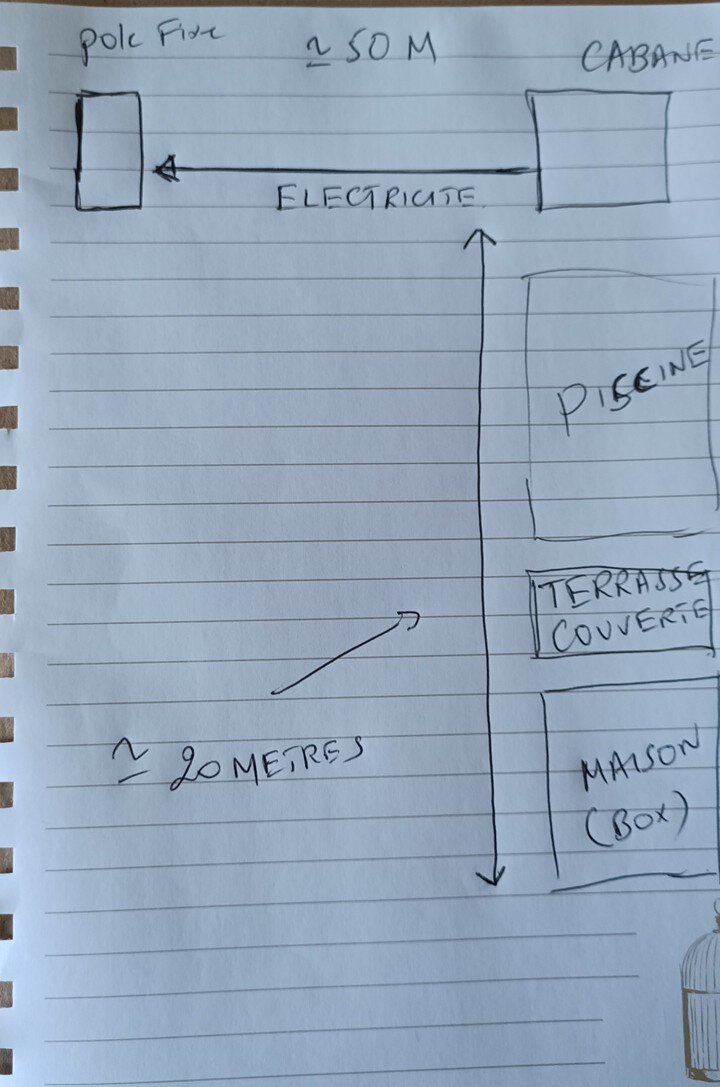 pole Five
≃ 50 M
CABANE
ELECTRICITE
PISCINE
TERRASSE
COUVERTE
≃ 20 METRES
MAISON
(BOX)